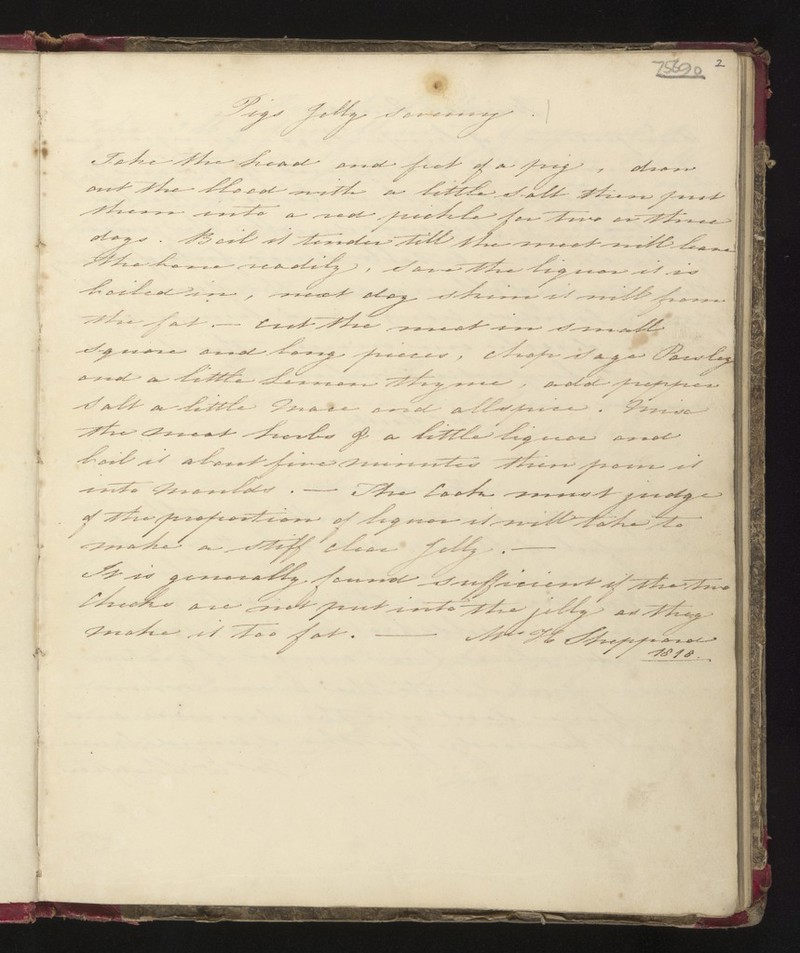 75690
2
Pigs Jelly savoury.
Take the head and feet of a pig, draw
out the blood with a little salt then put
them into a red pickle for two or three
days. Boil it tender till the meat will leave
the bone readily, save the liquor it is
boiled in, next day skim it well from
the fat. — cut the meat in small
square and long pieces, chop sage Parsley
and a little Lemon thyme, add pepper
salt a little Mace and allspice. Mix
the meat herbs & a little liquor and
boil it about five minutes then pour it
into Moulds. — The Cook must judge
of the proportion of liquor it will take to
make a stiff clear Jelly. —
It is generally found sufficient if the two
Cheeks are not put into the jelly as they
make it too fat. — Mrs H Sheppard
1818.